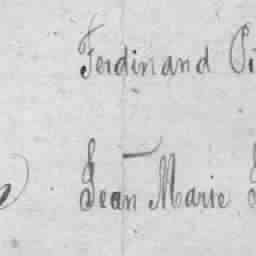 Ferdinand Pi
Jean Marie